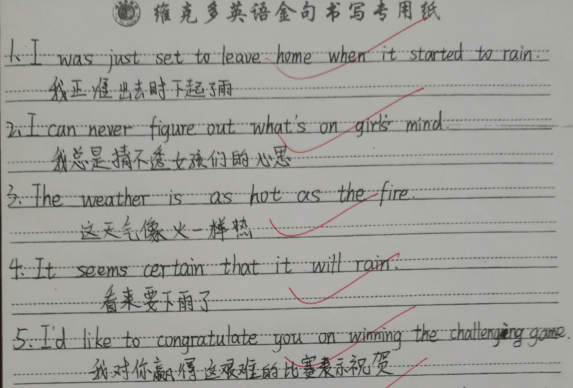 维克多英语金句书写专用纸
1. I was just set to leave home when it started to rain.
我正准出去时下起了雨
2. I can never figure out what's on girls' mind.
我总是猜不透女孩们的心思
3. The weather is as hot as the fire.
这天气像火一样热
4. It seems certain that it will rain.
看来要下雨了
5. I'd like to congratulate you on winning the challenging game.
我对你赢得这艰难的比赛表示祝贺